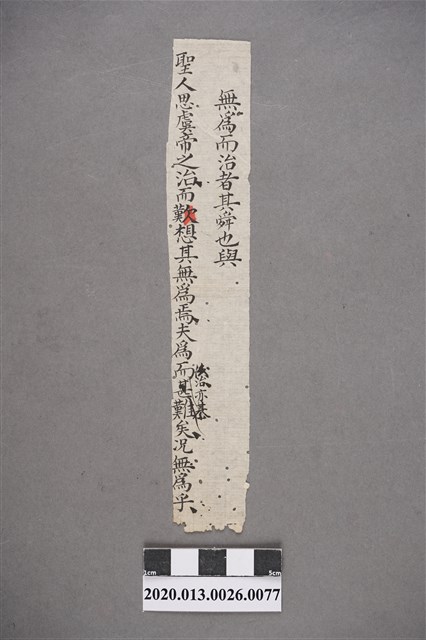 無為而治者其舜也與
聖人思虞帝之治而歎想其無為焉夫為而甚難矣况無為乎
1cm 5cm
2020.013.0026.0077